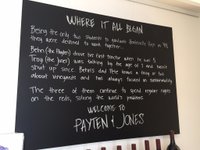 WHERE IT ALL BEGAN
Being the only two students to graduate from in '98,
they were destined to work together...
Behn (the Payten) drove his first tractor when he was 5
Troy (the Jones) was talking by the age of 1 and hasn't
shut up since. Behn's dad the knows a thing or two
about vineyards and has always focused on sustainability
The three of them continue to spend regular nights
on the reds, solving the world's problems
WELCOME TO
PAYTEN & JONES